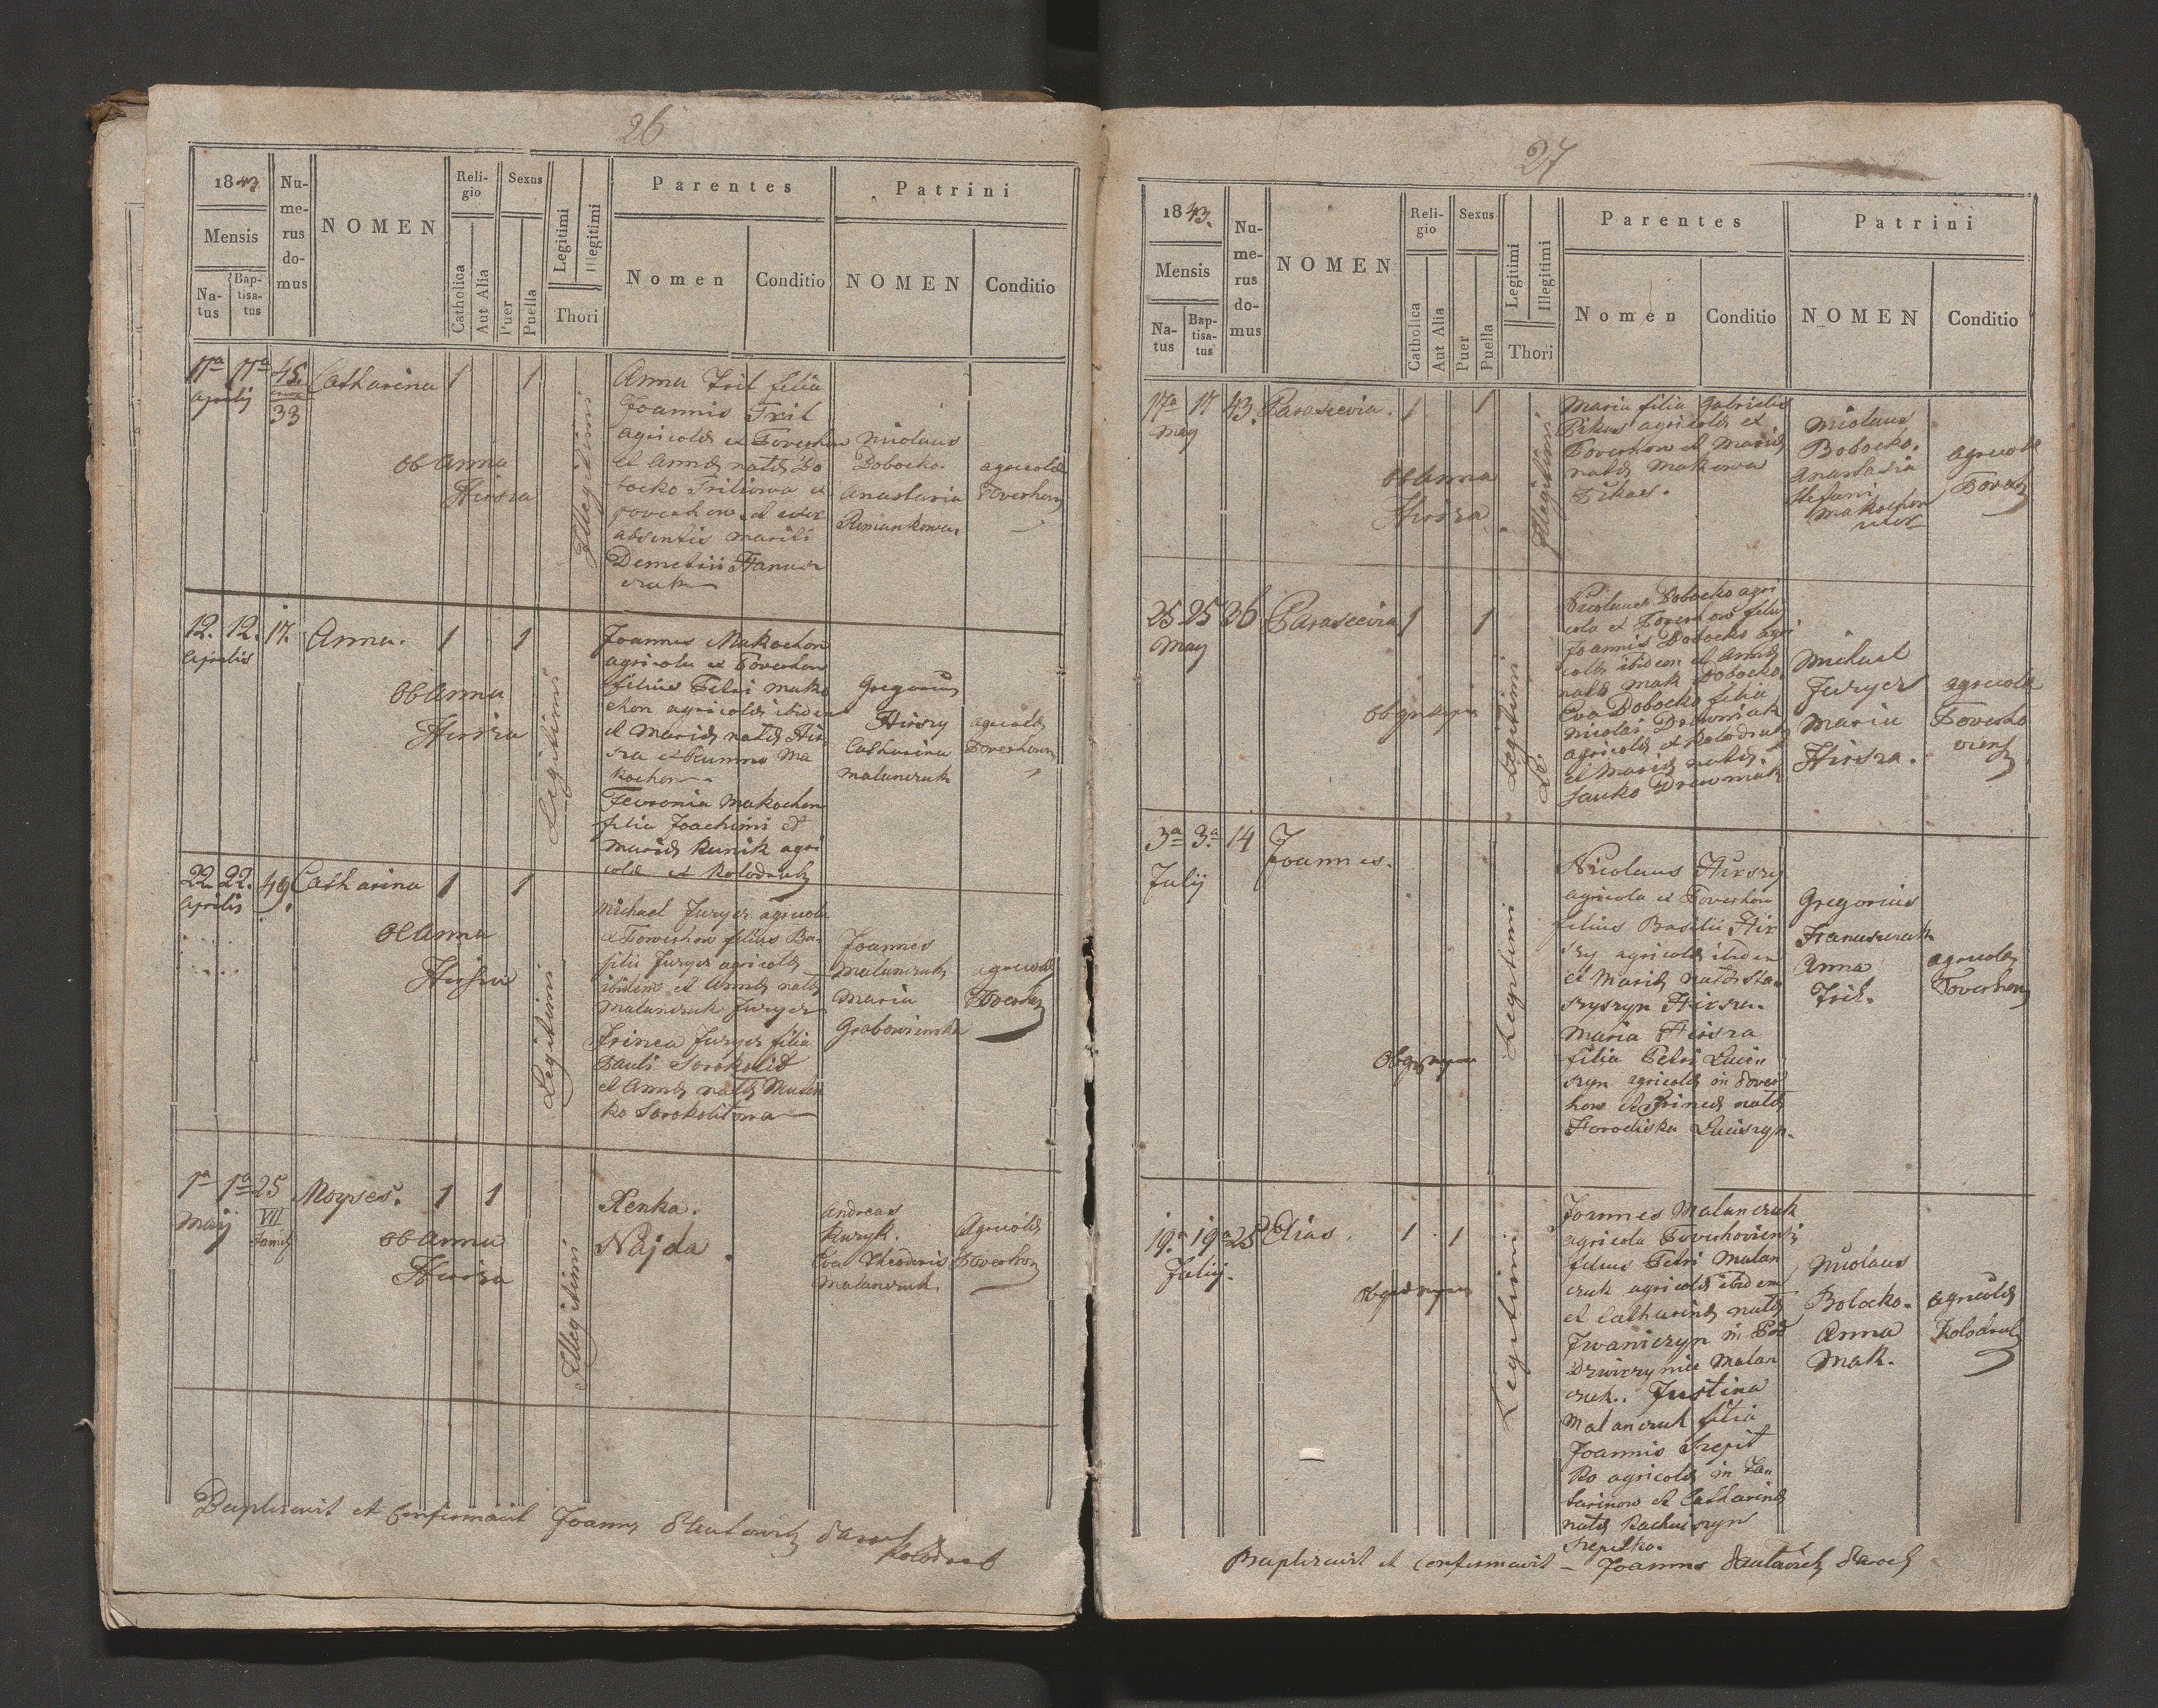 26
1843
Mensis
Na-
tus
Bap-
tisa-
tus
Nu-
me-
rus
do-
mus
NOMEN
Reli-
gio
Catholica
Aut Alia
Sexus
Puer
Puella
Legitimi
Illegitimi
Thori
Parentes
Nomen
Conditio
Patrini
NOMEN
Conditio
17a 17a 45 Catharina 1 1
Aprilis
33
Ob Anna
Hirsza
Illegitimi
Anna Tril filia
Joannis Tril
agricolae ex Powerchow
et Annae natae Bo
bocko Triliowa ex
powerchow et uxor
absentis mariti
Demetrii Hanusz
czuk
Nicolaus
Bobocko.
Anastasia
Romankowa.
agricolae
Powerhow
12. 12. 17. Anna. 1 1
Aprilis
Ob Anna
Hirsza
Legitimi
Joannes Makochon
agricola ex Powerhow
filius Petri Mako
chon agricolae ibidem
et Mariae natae Hir
sza Ma
kochon
Fevronia Makochon
filia Joachimi et
Mariae Kunik agri
colae ex Kolodrub
Gregorius
Hirszy
Catharina
Malanczuk
agricolae
Powerhow
22. 22. 49. Catharina 1 1
Aprilis
Ob Anna
Hirsza
Legitimi
Michael Juryer agricola
ex Powerhow filius Ba-
silii Juryer agricolae
ibidem et Annae natae
Malanczuk Juryer
Irinea Juryer filia
Pauli Sorokolit
et Annae natae Mudr
ko Sorokolitowa
Joannes
Malanczuk
Maria
Grabowienska
agricolae
Powerhow
1a 1a 25 Moyses. 1 1
Maij
VII
Ob Anna
Hirsza
Illegitimi
Xenka.
Najda.
Andreas
Kuryk.
Eva Theodoris
Malanczuk.
Agricolae
Powerhow
Baptisavit et Confirmavit Joannes
Kolodrub
27
1843.
Mensis
Na-
tus
Bap-
tisa-
tus
Nu-
me-
rus
do-
mus
NOMEN
Reli-
gio
Catholica
Aut Alia
Sexus
Puer
Puella
Legitimi
Illegitimi
Thori
Parentes
Nomen
Conditio
Patrini
NOMEN
Conditio
17a 17 43. Parascevia. 1 1
May
Ob Anna
Hirsza
Illegitimi
Maria filia Gabrielis
Pikas agricolae ex
Powerhow et Mariae
natae Makowa
Pikas.
Nicolaus
Bobocko.
Anastasia
Stefani
Makochon
uxor
agricolae
25 25 36 Parascevia 1 1
May
Legitimi
Nicolaus Bobocko agri
cola ex Powerhow filius
Joannis Bobocko agri
colae ibidem et Annae
natae Mak Bobocko.
Eva Bobocko filia
Nicolai Drewniak
agricolae ex Kolodrub
et Mariae natae
Jauko Drewniak
Michael
Juryer
Maria
Hirsza.
agricolae
Powerho
viens
3a 3a 14 Joannes.
Julij
Legitimi
Nicolaus Hirszy
agricola ex Powerhow
filius Basilii Hir
szy agricolae ibidem
et Mariae natae Sta-
szyszyn Hirsza.
Maria Hirsza
filia Petri Luci-
szyn agricolae in Power
how et Irineae natae
Horodiska Luciszyn.
Gregorius
Hanuszczuk
Anna
Tril.
agricolae
Powerhow
19a 19a 25 Elias. 1 1
Julij.
Legitimi
Joannes Malanczuk
agricola Powerhoviensis
filius Petri Malan
czuk agricolae ibidem
et Catharinae natae
Iwaniczyn in Pod
Malan
czuk. Justina
Malanczuk filia
Joannis Szepit
ko agricolae in Ta-
tarinow et Catharinae
natae
Szepitko.
Nicolaus
Bobocko.
Anna
Mak.
agricolae
Kolodrub
Baptisavit et Confirmavit – Joannes